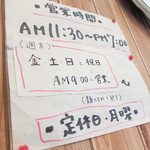 ・営業時間・
AM11:30~PM7:00
(週末)
金土日と祝日
AM9:00~営業
・定休日・月曜・